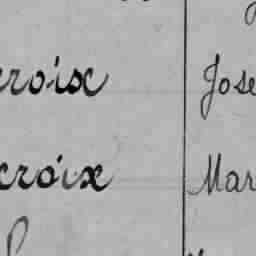 croix Jose
croix Mar